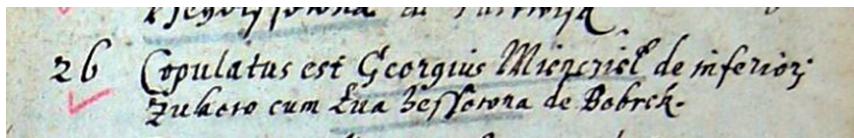 26 Copulatus est Georgius Miencziel de inferiori
Zukow cum Eua Zesssowna de Bobrek.